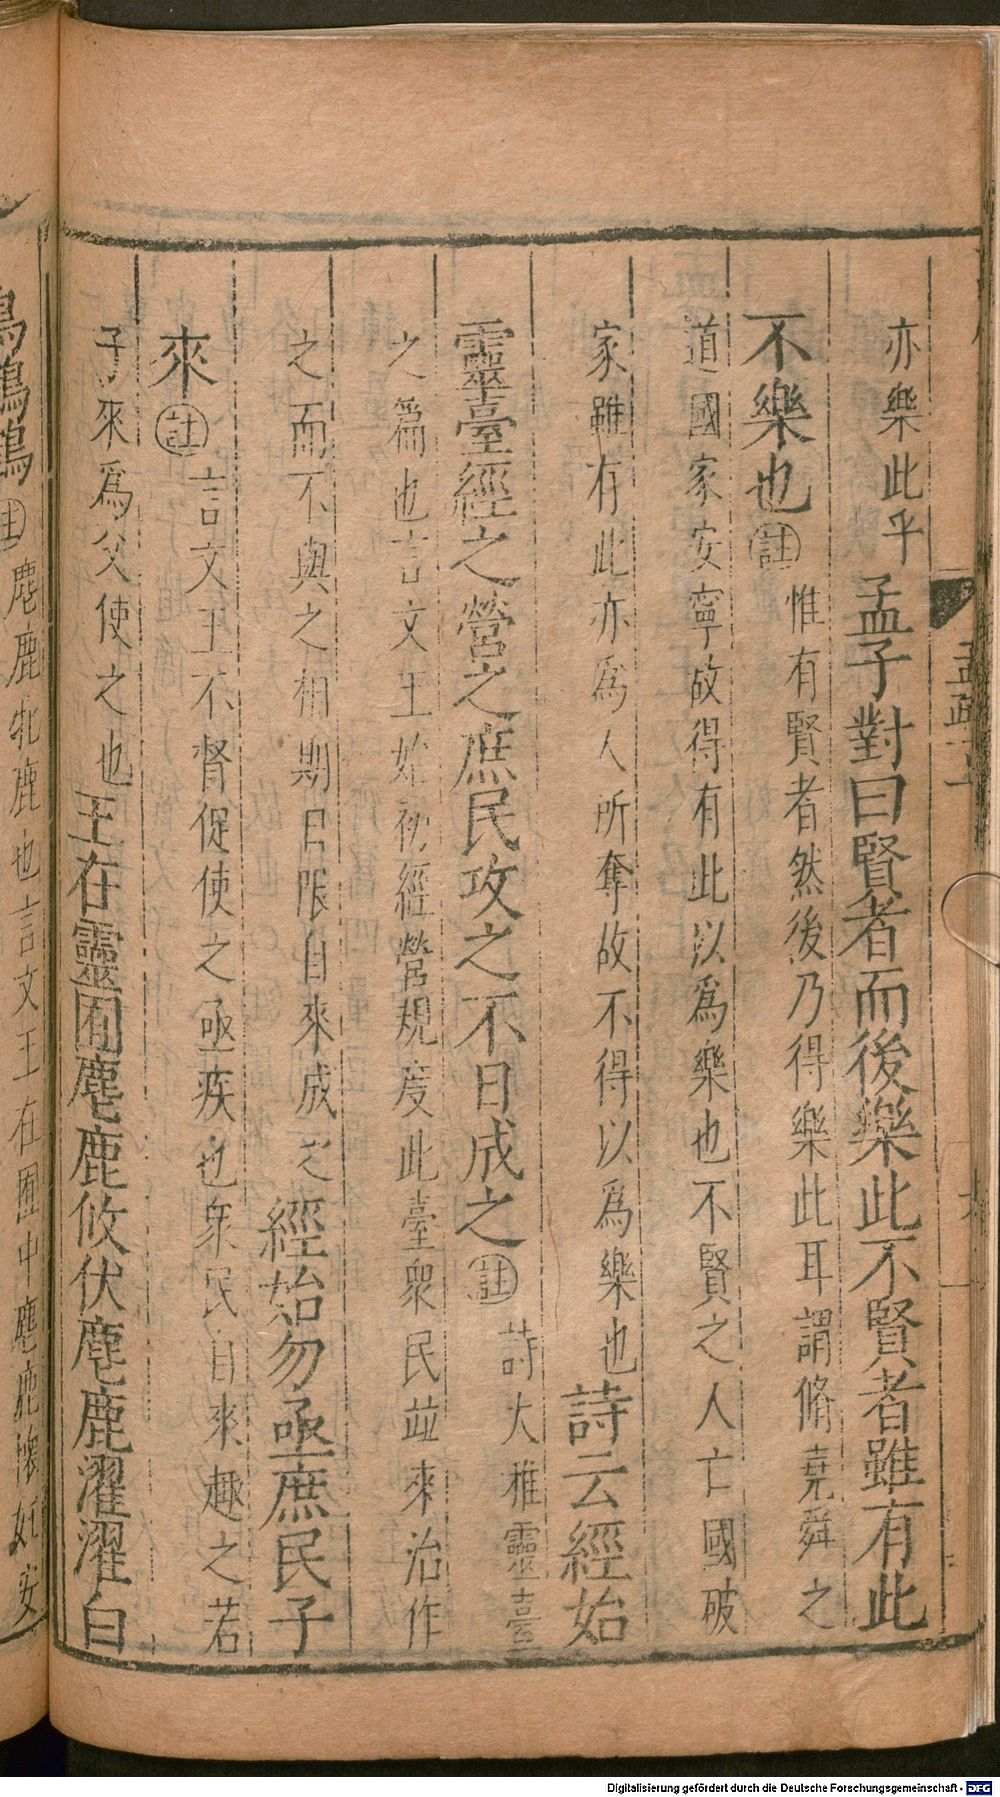 亦樂此乎孟子對曰賢者而後樂此不賢者雖有此
不樂也註惟有賢者然後乃得樂此耳謂脩堯舜之
道國家安寧故得有此以為樂也不賢之人亡國破
家雖有此亦爲人所奪故不得以爲樂也詩云經始
靈臺經之營之庶民攻之不日成之註詩大雅靈臺
之篇也言文王始初經營規度此臺衆民並來治作
之而不與之相期日限自來成之經始勿亟庶民子
來註言文王不督促使之亟疾也衆民自來趣之若
子來爲父使之也王在靈囿麀鹿攸伏麀鹿濯濯白
鳥鶴鶴註麀鹿牝鹿也言文王在囿中麀鹿懷妊安
Digitalisierung gefördert durch die Deutsche Forschungsgemeinschaft - DFG